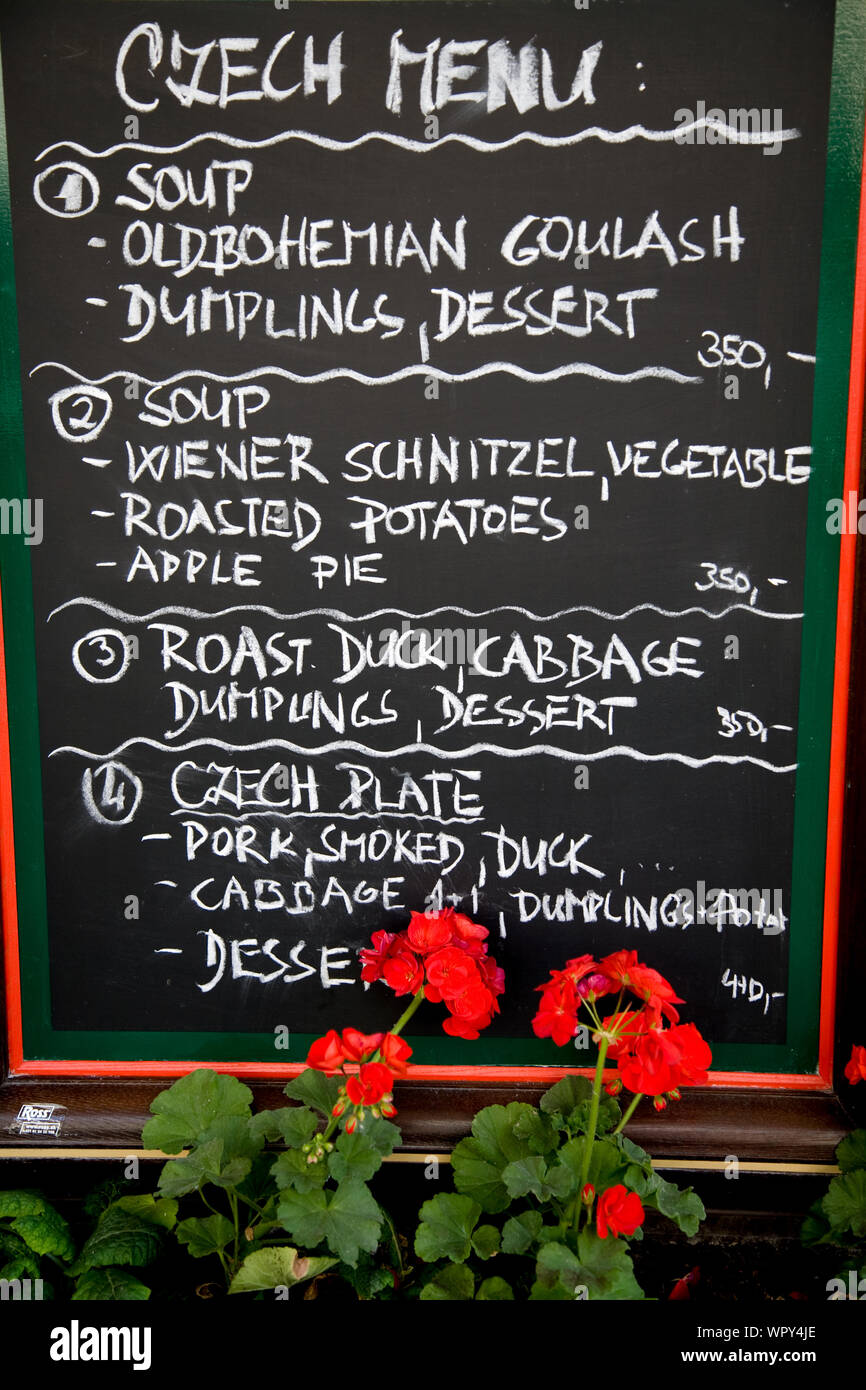 CZECH MENU :
① SOUP
- OLDBOHEMIAN GOULASH
- DUMPLINGS, DESSERT
350,-
② SOUP
- WIENER SCHNITZEL, VEGETABLE
- ROASTED POTATOES
- APPLE PIE
350,-
③ ROAST. DUCK, CABBAGE
DUMPLINGS, DESSERT
350,-
④ CZECH PLATE
- PORK, SMOKED, DUCK, ...
- CABBAGE 1+1, DUMPLINGS+Potat
- DESSE
ROSS
alamy
Image ID: WPY4JE
www.alamy.com